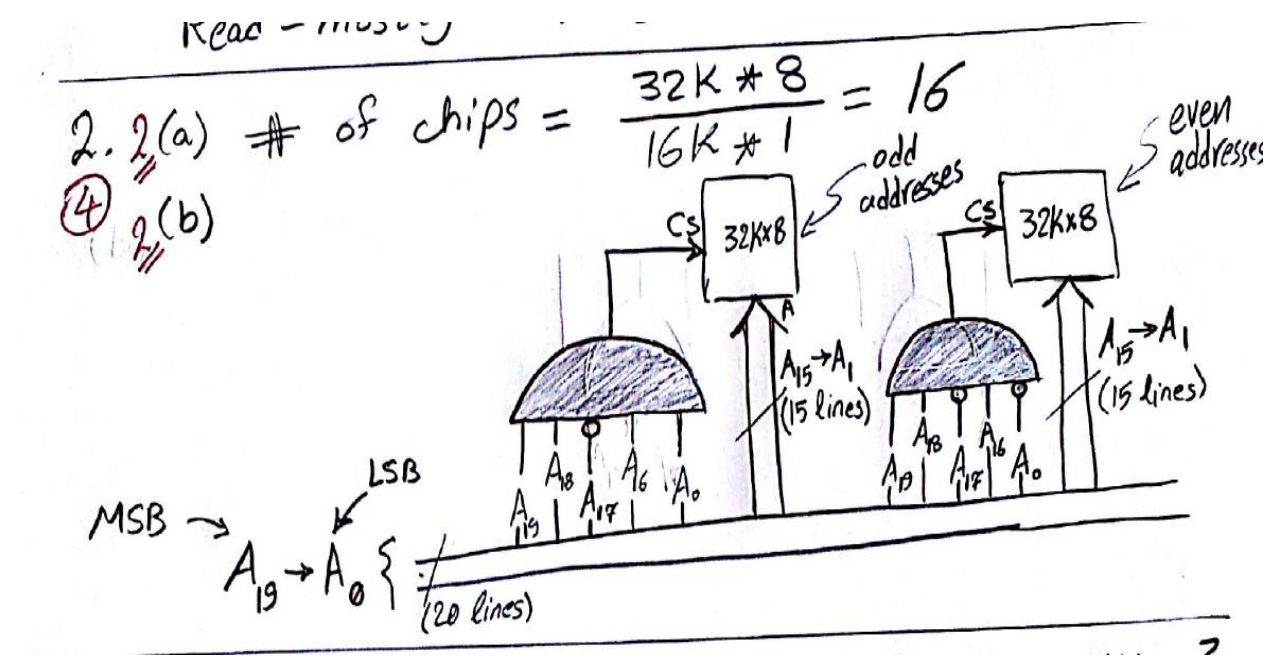 Read - mostly
2. 2(a) # of chips = 32K * 8 / 16K * 1 = 16
④ 2(b)
odd addresses
even addresses
CS 32K×8
CS 32K×8
A
A15→A1
(15 lines)
A15→A1
(15 lines)
A19 A18 A17 A6 A0
A19 A18 A17 A16 A0
MSB
LSB
A19→A0 {
(20 lines)